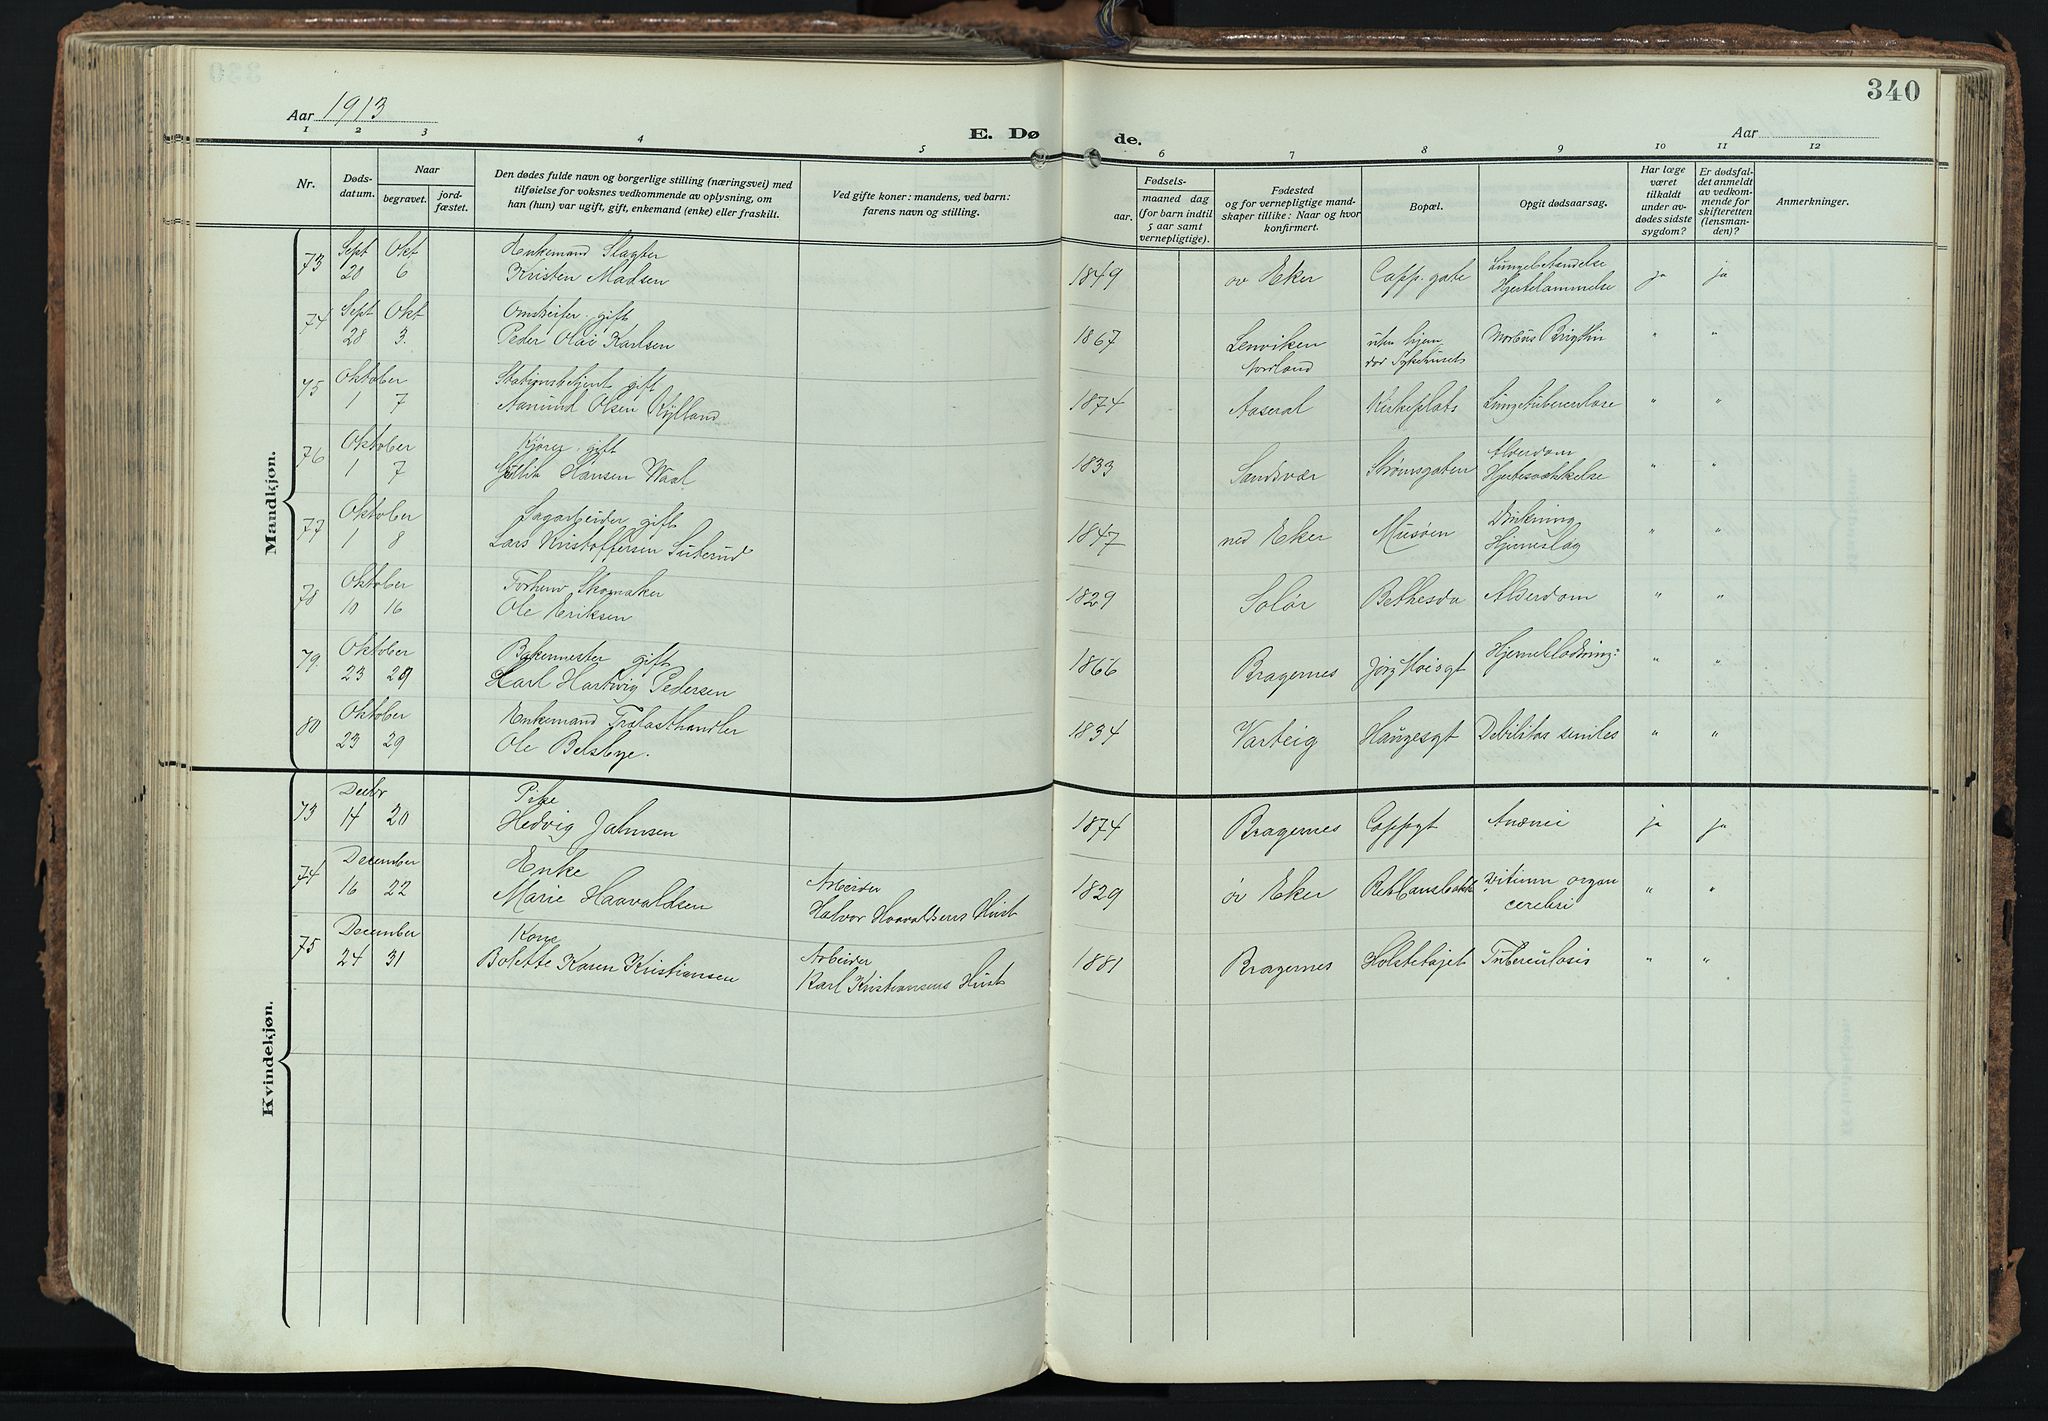 340
Aar 1913
E. Dø de.
Aar
1 2 3 4 5 6 7 8 9 10 11 12
Nr.
Døds-
datum.
Naar
begravet.
jord-
fæstet.
Den dødes fulde navn og borgerlige stilling (næringsvei) med
tilføielse for voksnes vedkommende av oplysning, om
han (hun) var ugift, gift, enkemand (enke) eller fraskilt.
Ved gifte koner: mandens, ved barn:
farens navn og stilling.
Fødsels-
aar.
maaned dag
(for barn indtil
5 aar samt
vernepligtige).
Fødested
og for vernepligtige mand-
skaper tillike: Naar og hvor
konfirmert.
Bopæl.
Opgit dødsaarsag.
Har læge
været
tilkaldt
under av-
dødes sidste
sygdom?
Er dødsfal-
det anmeldt
av vedkom-
mende for
skifteretten
(lensman-
den)?
Anmerkninger.
Mandkjøn.
73 Sept Okt Enkemand Slagter
20 6 Kristen Madsen 1849 øv Eker Capp. gate Lungebetændelse
Hjertelammelse ja ja
74 Sept Okt gift
28 3. Peder Olai Karlsen 1867 Lenviken uten hjem Morbus Brigthii " "
Nordland Sykehuset
75 Oktober Stationsbetjent gift
1 7 Aanund Olsen Kylland 1874 Aaseral Kirkeplats Lungetuberculose " "
76 Oktober Kjører gift
1 7 Gullik Hansen Waal 1833 Sandsvær Strømsgaten Alderdom
Hjertesvækkelse " "
77 Oktober Sagarbeider gift
1 8 Lars Kristoffersen 1847 ned Eker Musøen Drukning
Hjerneslag " "
78 Oktober Forhenv Skomaker
10 16 Ole Eriksen 1829 Solør Bethesda Alderdom " "
79. Oktober Bakermester gift
23 29 Karl Hartwig Pedersen 1866 Bragernes Hjerneblødning: " "
80 Oktober Enkemand Trælasthandler
23 29 Ole Belsbye. 1834 Varteig Haugesgt Debilitas seniles " "
Kvindekjøn.
73 Decbr Pike
14 20 Hedvig Jahnsen 1874 Bragernes Cappsgt Anæmi ja ja
74 December Enke
16 22 Marie Haavaldsen Arbeider
Halvor Haavaldsens Hust 1829 øv Eker Vitium organ
cerebri " "
75 December Kone
24 31 Bolette Karen Kristiansen Arbeider
Karl Kristiansens Hust 1881 Bragernes Tuberculosis " "